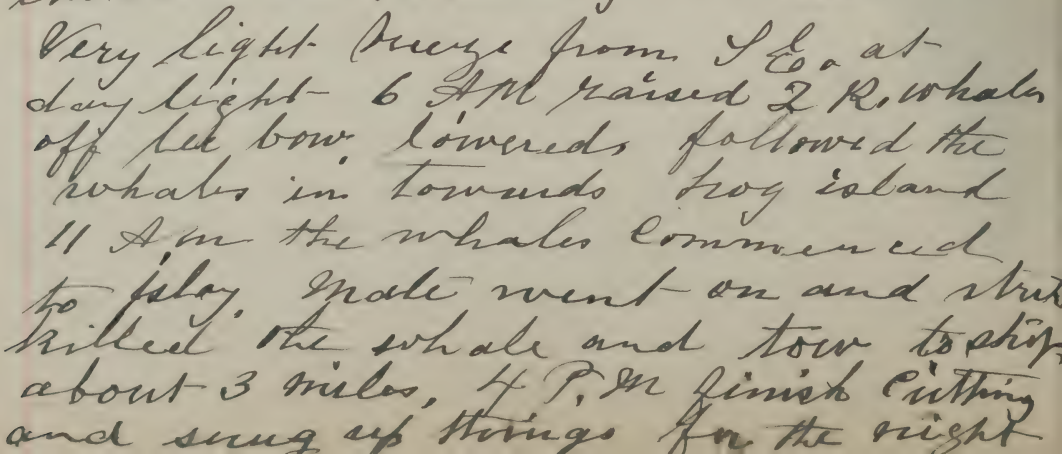 Very light breeze from S E. at
day light 6 AM raised 2 R. whales
off lee bow lowereds followed the
whales in towards hog island
11 A m the whales Commenced
to play. Mate went on and struk
killed the whale and tow to ship
about 3 miles. 4 P. M finish Cutting
and snug up things for the night